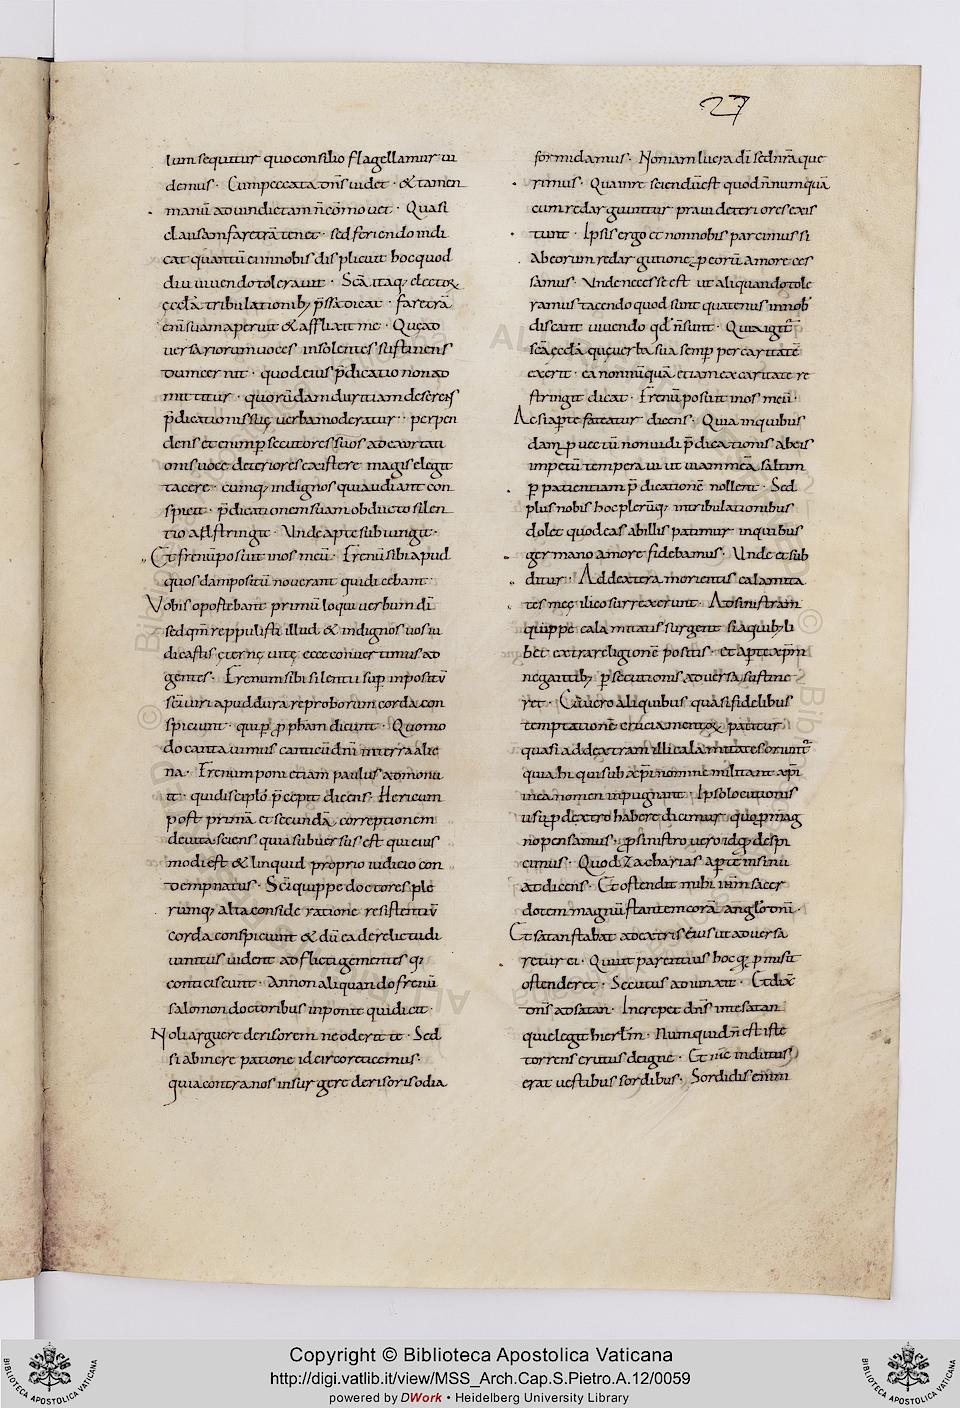 27
lum sequitur quo consilio flagellamur ui
demus · Cum peccata dn̄s uidet · & tamen
manū ad uindictam n̄ cōmouet · Quasi
clausam faretrā tenet · sed feriendo indi
cat quantū ei in nobis displicuit hoc quod
diu uiuendo tolerauit · Scā itaq; electorꝝ
ęcclā tribulationib; p̄ssa dicat · faretrā
enī suam aperuit & afflixit me · Quę ad
uersariorum uoces insolentes sustinens
dum cernit · quod eius p̄dicatio non ad
mittitur · quorūdam duritiam deserens
p̄dicationis suę uerba moderatur · perpen
dens etenim ꝑsecutores suos ad exortati
onis uocę deteriores existere magis elegit
tacere · eumq; indignos qui audiant con
spicit · p̄dicationem suam obducto silen
tio adstringit · Unde apte subiungit ·
Et frenū posuit in os meū · Frenū sibi apud
quos dam positū nouerant qui dicebant ·
Vobis oportebant primū loqui uerbum dī
sed qm̄ reppulisti illud & indignos uos iu
dicastis ęternę uitę ecce conuertimus ad
gentes · Frenum sibi silentii suꝑ inpositū
scī uiri apud dura reproborum corda con
spiciunt · qui ꝑ ꝓpham dicunt · Quomo
do cantauimus canticū dnī in terra alie
na · Frenum poni etiam paulus admonu
it · qui discipło p̄cepit dicens · Hereticum
post primā et secundā correptionem
deuita sciens quia subuersus est qui eius
modi est & linquid proprio iudicio con
dempnatus · Scī quippe doctores ple
rumq; alta consideratione resistentiū
corda conspiciunt & dū ea derelicta di
uinitus uident adflicti gementes q;
conticiscunt · Annon aliquando frenū
salomon doctoribus inponit qui dicit ·
Noli arguere derisorem ne oderit te · Sed
si ab increpatione idcirco reticemus ·
quia contra nos insurgere derisoris odia
formidamus · Non iam lucra dī sed nr̄a que
rimus · Qua in re sciendū est quod n̄numquā
cum redarguuntur praui deteriores exis
tunt · Ipsis ergo et non nobis parcimus si
ab eorum redargutione ꝓ eorū amore ces
samus · Unde necesse est ut aliquando tole
ramus tacendo quod sunt quatenus in nob̄
discant uiuendo qd̄ n̄ sunt · Quia igit̄
scā ęcclā quę uerba sua semꝑ per caritatē
exerit · ea nonnūquā etiam ex caritate re
stringit dicat · Frenū posuit in os meū ·
Ac si aꝑte fateatur dicens · Quia in quibus
dam ꝓuectū non uidi p̄dicationis ab eis
impetū temperaui ut uiam meā saltim
ꝑ patientiam p̄dicationē nollent · Sed
plus nobis hoc plerūq; in tribulationibus
dolet quod eas ab illis patimur in quibus
germano amore fidebamus · Unde et sub
ditur · Ad dextera morientis calamita
tes meę ilico surrexerunt · Ad sinistram
quippe calamitatis surgent si a quib; li
bet extra religionē positis · et aꝑte xp̄m
negantib; ꝑsecutionis aduersa sustine
ret · Cū uero aliquibus quasi fidelibus
temptationē cruciamentorꝝ patitur
quasi ad dextram illi calamitates oriunt̄
quia hi qui sub xp̄i nomine militant xp̄i
in ea nomen inpugnant · Ipso locutionis
usu ꝓ dextro habere dicimur quo ꝓ mag
no pensamus · ꝓ sinistro uero id qd̄ despi
cimus · Quod Zacharias aꝑte insinu
at dicens · Et ostendit mihi ihm̄ sacer
dotem magnū stantem corā angło dnī ·
Et satan stabat ad dextris eius ut aduersa
retur ei · Quid parentius hoc qd̄ ꝓmisit
ostenderet · Secutus adiunxit · Et dix̄
dn̄s ad satan · Increpet dn̄s in te satan
qui elegit hierłm · Numquid n̄ est iste
torrens erutus de igne · Et ih̄c indutus
erat uestibus sordibus · Sordidis enim
Copyright © Biblioteca Apostolica Vaticana
http://digi.vatlib.it/view/MSS_Arch.Cap.S.Pietro.A.12/0059
powered by DWork • Heidelberg University Library